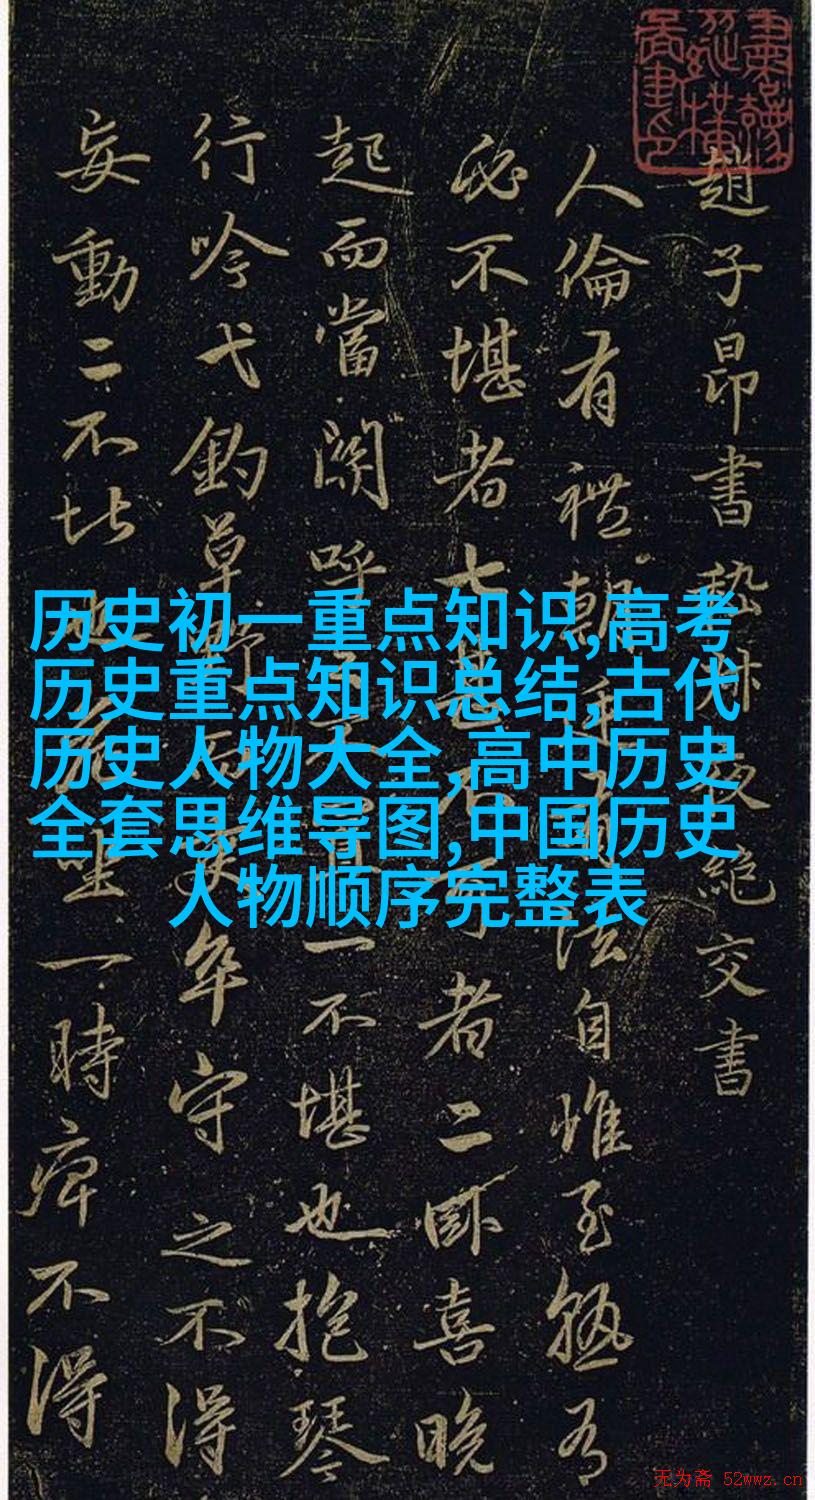 趙子昂書嵇叔夜絕交書
人倫有禮朝廷有法自惟至熟有
必不堪者七甚不可者二卧喜晚
起而當關呼之不置一不堪也抱琴
行吟弋釣草野而吏卒守之不得
妄動二不堪也危坐一時痺不得
历史初一重点知识,高考
历史重点知识总结,古代
历史人物大全,高中历史
全套思维导图,中国历史
人物顺序完整表
无为斋 52wwz.cn